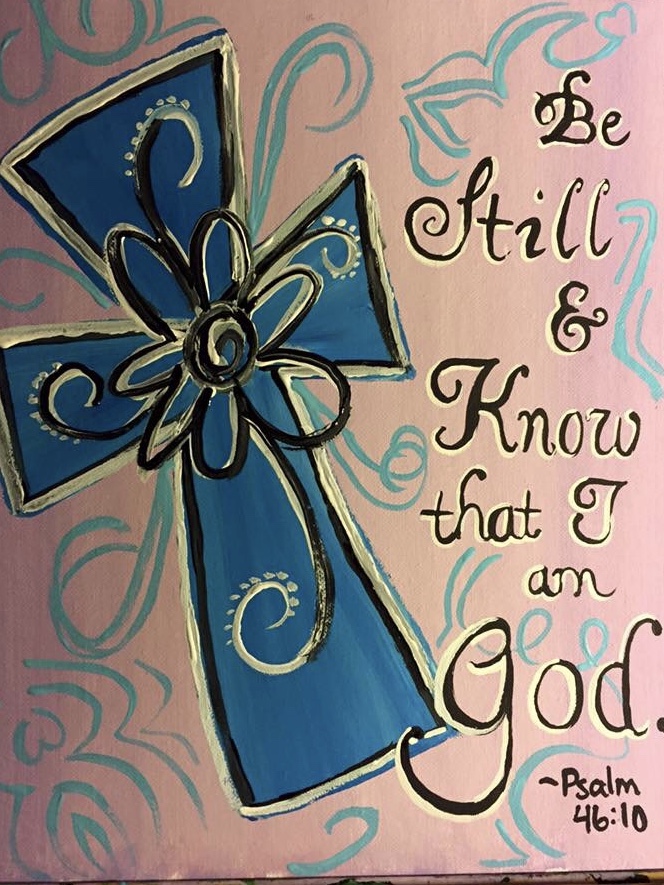 Be
Still
&
Know
that I
am
God.
~Psalm
46:10